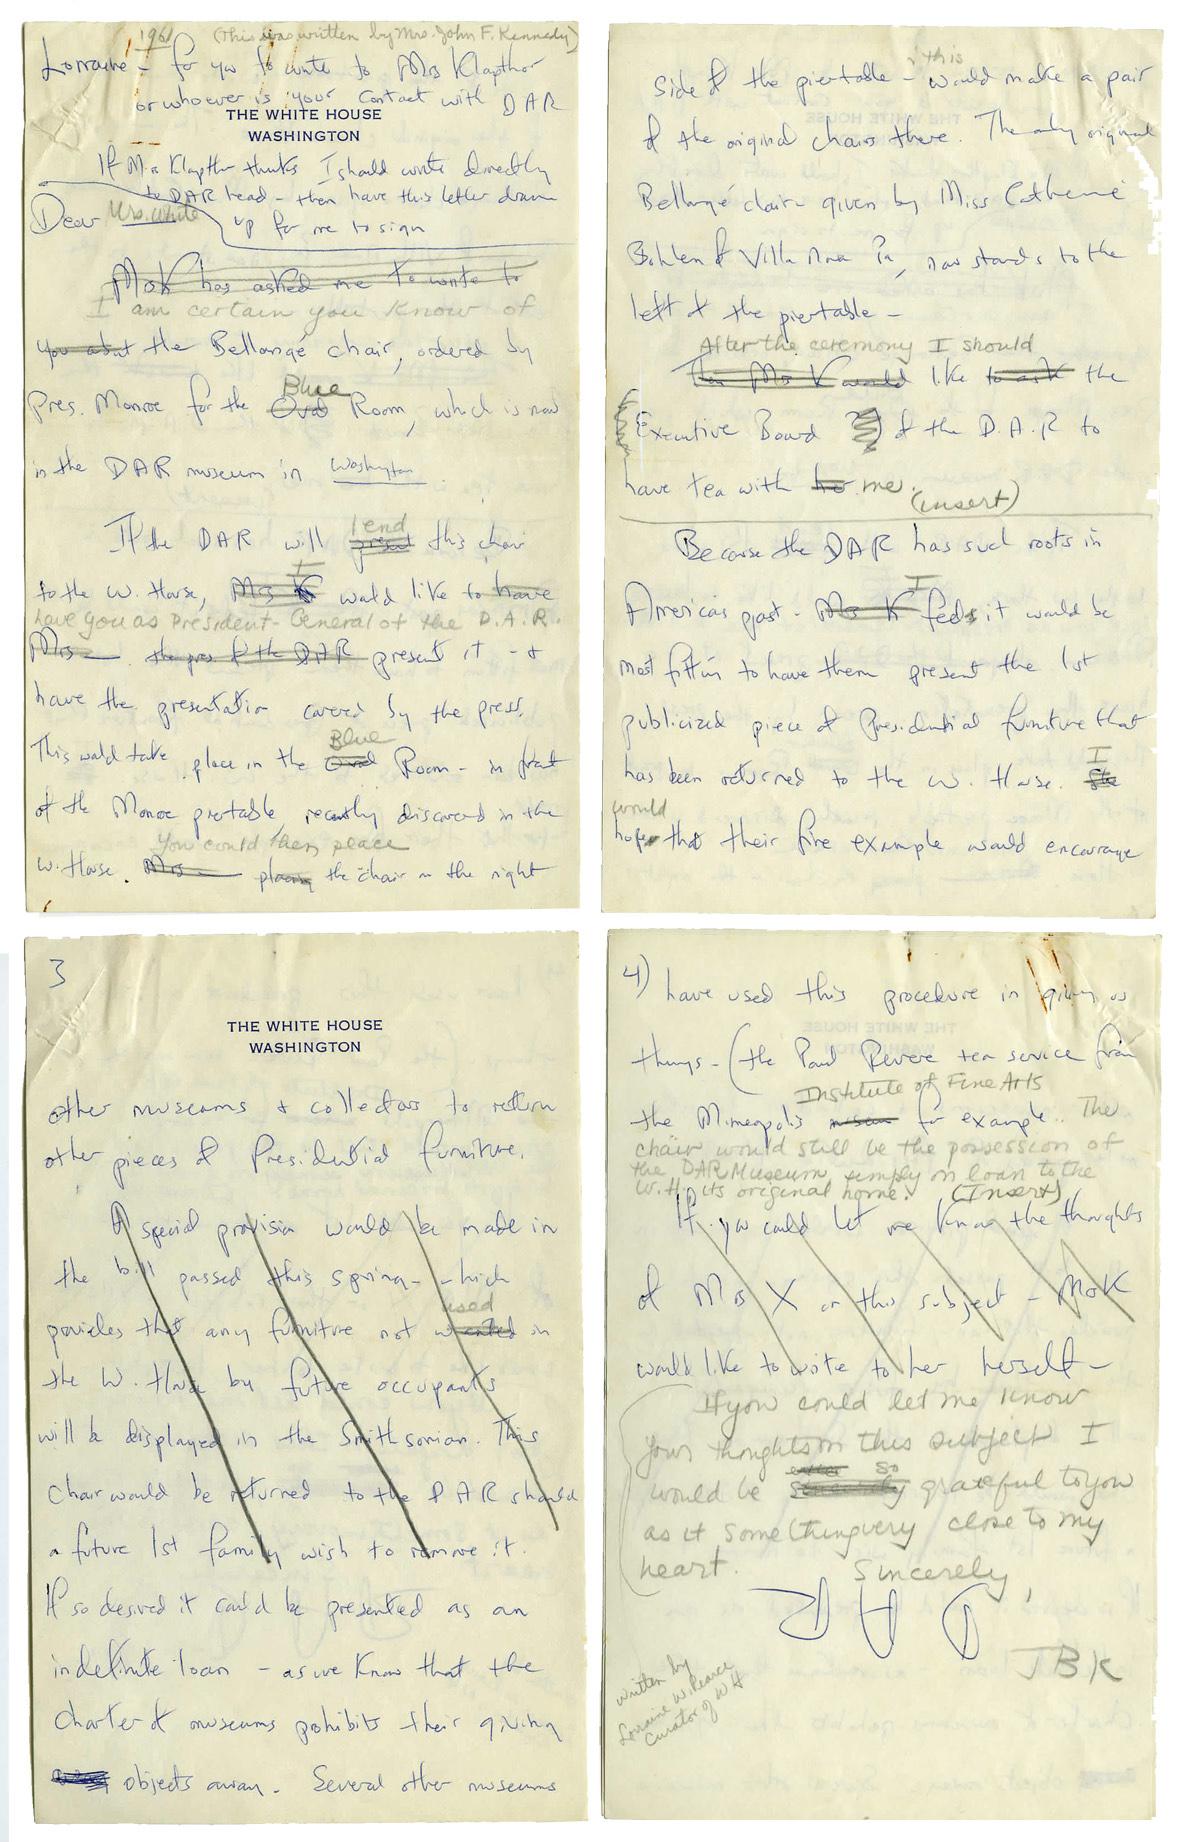 1961 (This was written by Mrs. John F. Kennedy)
Lorraine - for you to write to Mrs Klapthor
or whoever is your contact with DAR
THE WHITE HOUSE
WASHINGTON
If Mrs Klapthor thinks I should write directly
to DAR head - then have this letter drawn
Dear Mrs. White up for me to sign
Mrs K has asked me to write to
I am certain you know of
you about the Bellangé chair, ordered by
Blue
Pres. Monroe for the Oval Room, which is now
in the DAR museum in Washington.
lend
If the DAR will present this chair
I
to the W. House, Mrs K would like to have
have you as President-General of the D.A.R.
Mrs — the pres of the DAR present it - &
have the presentation covered by the press.
Blue
This would take place in the Oval Room - in front
of the Monroe piertable, recently discovered in the
You could then place
W. House. Mrs — placing the chair on the right
this
side of the piertable - would make a pair
of the original chairs there. The only original
Bellangé chair - given by Miss Catherine
Bohlen of Villa Nova Pa, now stands to the
left of the piertable -
After the ceremony I should
Then Mrs K would like to ask the
Executive Board of the D.A.R to
have tea with her me.
(insert)
Because the DAR has such roots in
I
Americas past - Mrs K feels it would be
most fitting to have them present the 1st
publicized piece of Presidential furniture that
I
has been returned to the W. House. She
would
hopes that their fine example would encourage
3
THE WHITE HOUSE
WASHINGTON
other museums & collectors to return
other pieces of Presidential furniture.
A special provision would be made in
the bill passed this spring - which
used
provides that any furniture not wanted in
the W. House by future occupants
will be displayed in the Smithsonian. This
chair would be returned to the DAR should
a future 1st family wish to remove it.
If so desired it could be presented as an
indefinite loan - as we know that the
charter of museums prohibits their giving
objects away. Several other museums
4) have used this procedure in giving us
things - (the Paul Revere tea service from
Institute of Fine Arts
the Minneapolis museum for example. The
chair would still be the possession of
the DAR Museum simply on loan to the
W.H. its original home. (Insert)
If you could let me know the thoughts
of Mrs X on this subject - Mrs K
would like to write to her herself -
If you could let me know
your thoughts on this subject I
so
would be sincerely grateful to you
as it something very close to my
heart. Sincerely,
JBK
written by
Lorraine W. Pearce
Curator of WH